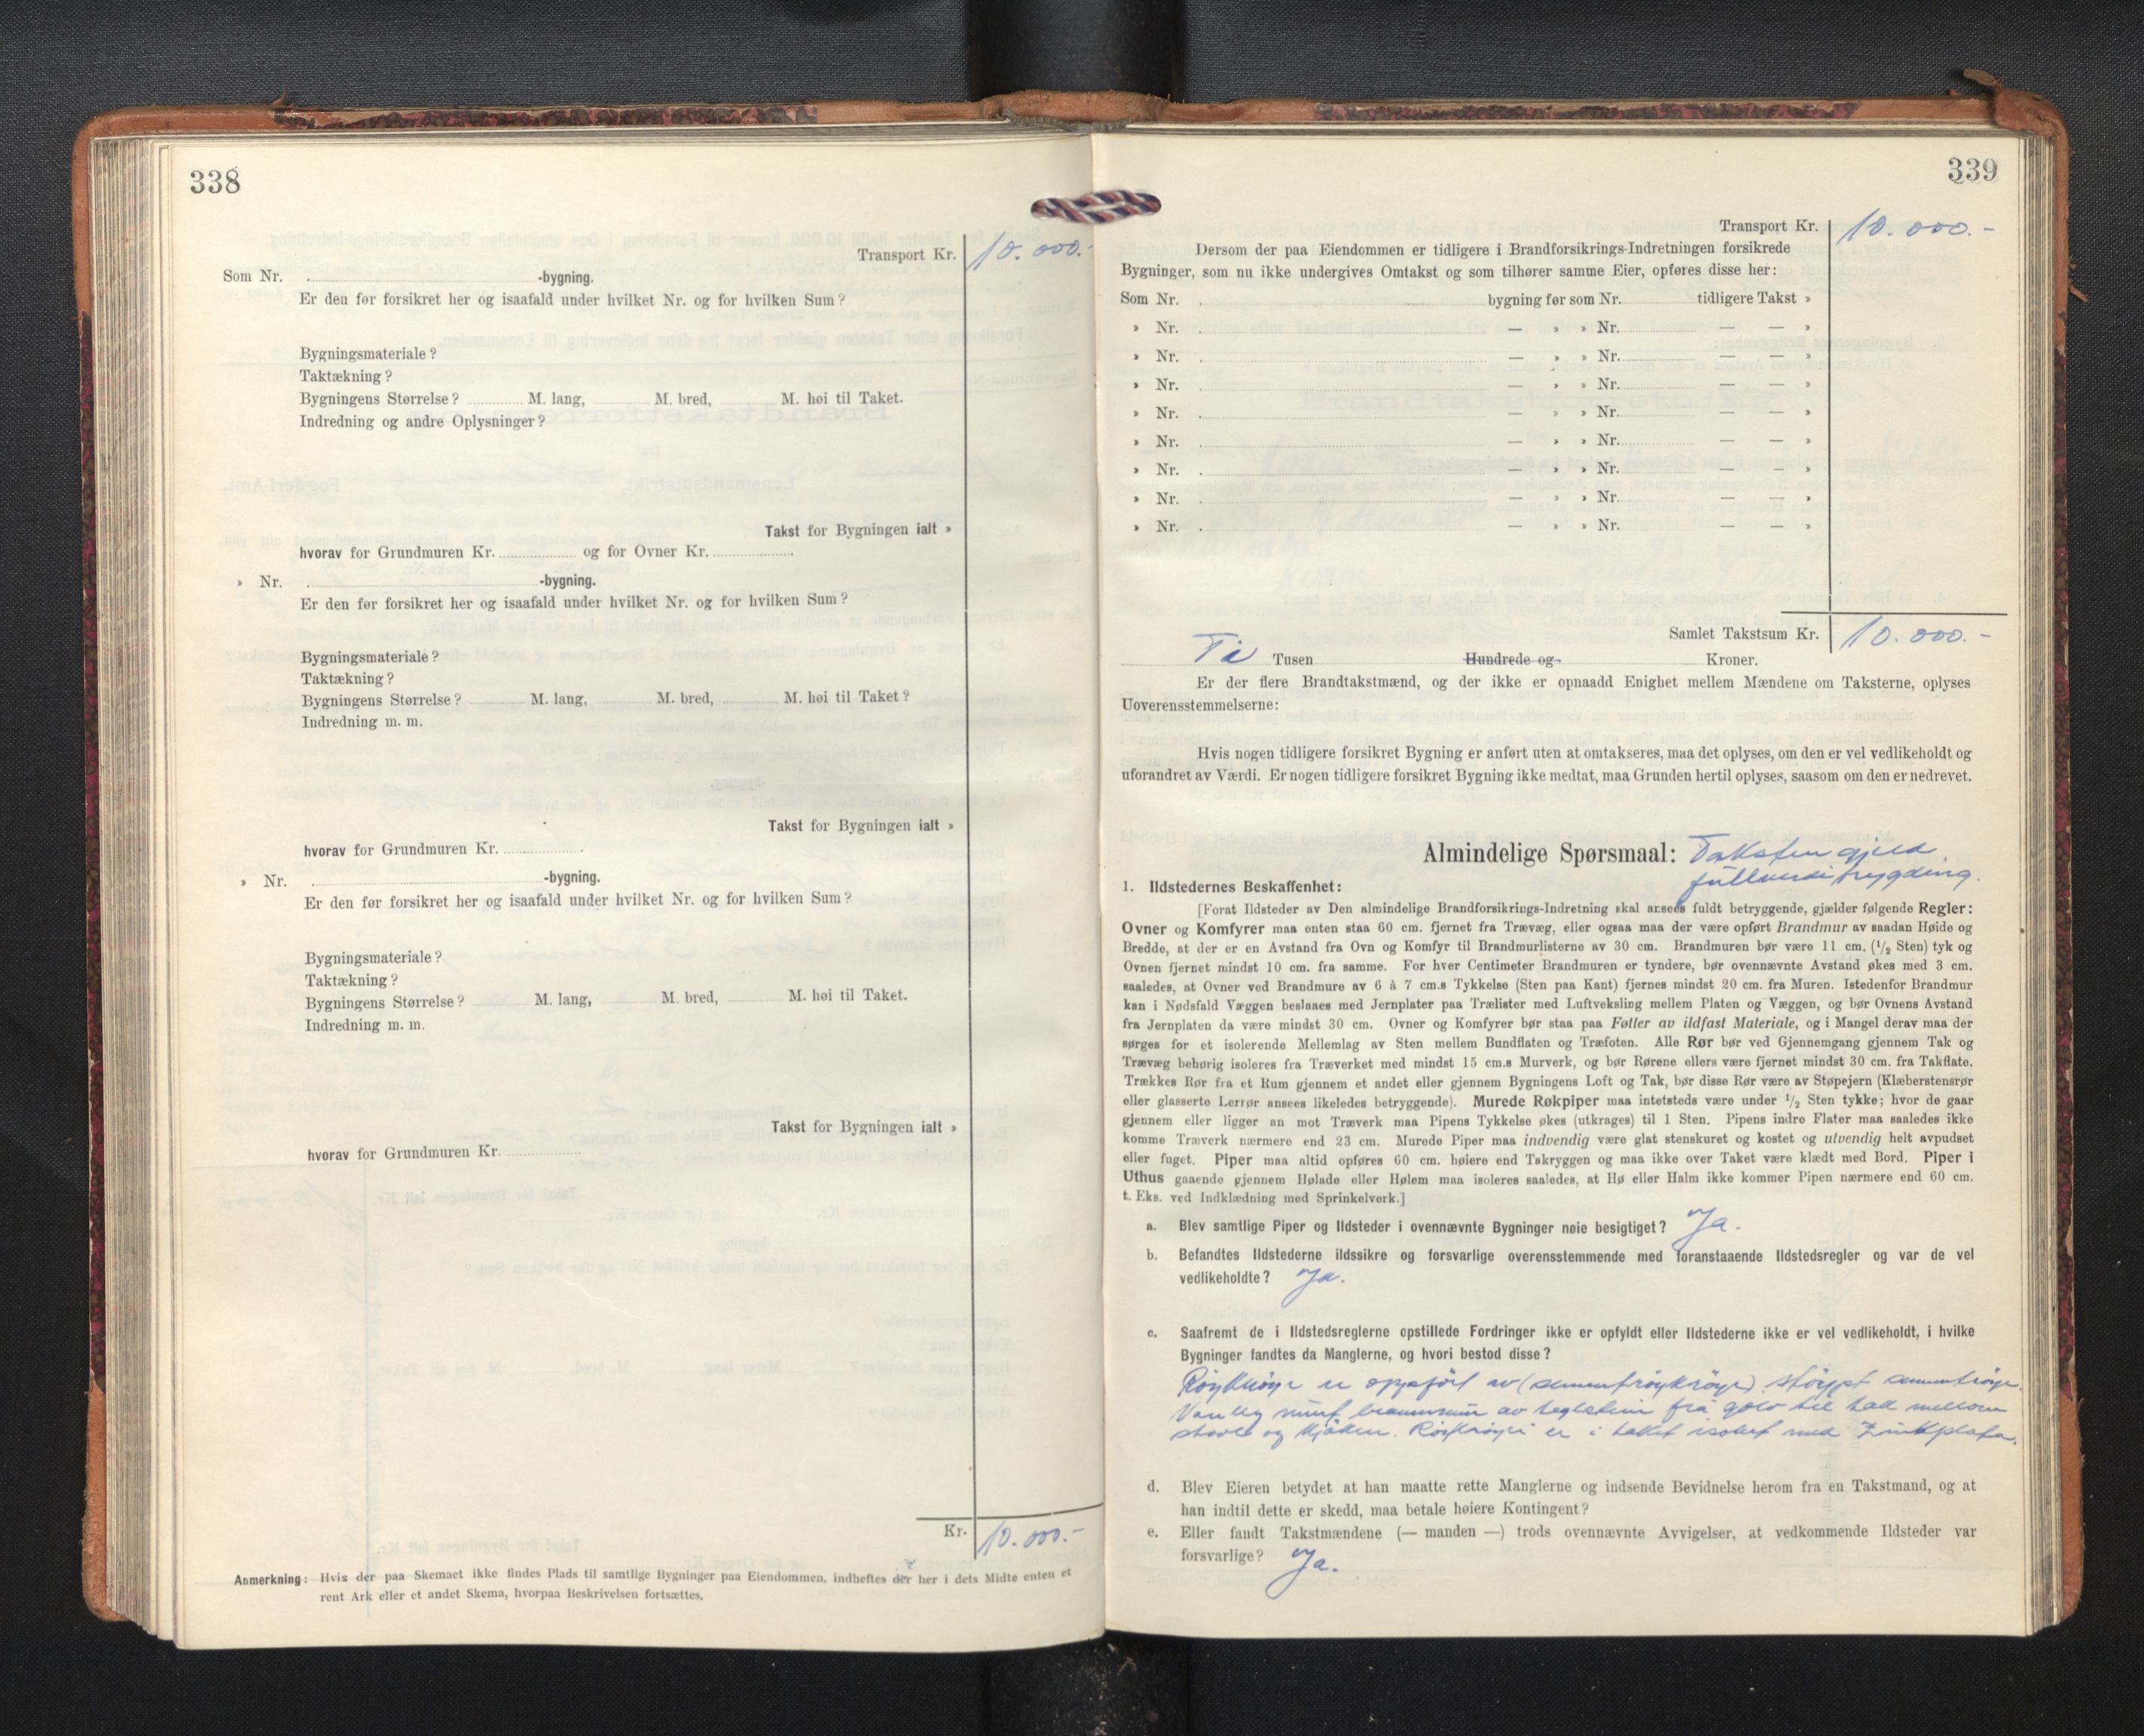 338
Transport Kr. 10.000.-
Som Nr. -bygning.
Er den før forsikret her og isaafald under hvilket Nr. og for hvilken Sum?
Bygningsmateriale?
Taktækning?
Bygningens Størrelse? M. lang, M. bred, M. høi til Taket.
Indredning og andre Oplysninger?
Takst for Bygningen ialt »
hvorav for Grundmuren Kr. og for Ovner Kr.
» Nr. -bygning.
Er den før forsikret her og isaafald under hvilket Nr. og for hvilken Sum?
Bygningsmateriale?
Taktækning?
Bygningens Størrelse? M. lang, M. bred, M. høi til Taket?
Indredning m. m.
Takst for Bygningen ialt »
hvorav for Grundmuren Kr.
» Nr. -bygning.
Er den før forsikret her og isaafald under hvilket Nr. og for hvilken Sum?
Bygningsmateriale?
Taktækning?
Bygningens Størrelse? M. lang, M. bred, M. høi til Taket.
Indredning m. m.
Takst for Bygningen ialt »
hvorav for Grundmuren Kr.
Kr. 10.000.-
Anmerkning: Hvis der paa Skemaet ikke findes Plads til samtlige Bygninger paa Eiendommen, indheftes der her i dets Midte enten et
rent Ark eller et andet Skema, hvorpaa Beskrivelsen fortsættes.
339
Transport Kr. 10.000.-
Dersom der paa Eiendommen er tidligere i Brandforsikrings-Indretningen forsikrede
Bygninger, som nu ikke undergives Omtakst og som tilhører samme Eier, opføres disse her:
Som Nr. bygning før som Nr. tidligere Takst »
» Nr. — » » Nr. — — »
» Nr. — » » Nr. — — »
» Nr. — » » Nr. — — »
» Nr. — » » Nr. — — »
» Nr. — » » Nr. — — »
» Nr. — » » Nr. — — »
» Nr. — » » Nr. — — »
» Nr. — » » Nr. — — »
Samlet Takstsum Kr. 10.000.-
Ti Tusen Hundrede og Kroner.
Er der flere Brandtakstmænd, og der ikke er opnaadd Enighet mellem Mændene om Taksterne, oplyses
Uoverensstemmelserne:
Hvis nogen tidligere forsikret Bygning er anført uten at omtakseres, maa det oplyses, om den er vel vedlikeholdt og
uforandret av Værdi. Er nogen tidligere forsikret Bygning ikke medtat, maa Grunden hertil oplyses, saasom om den er nedrevet.
Almindelige Spørsmaal: Taksten gjeld
fullverditrygding.
1. Ildstedernes Beskaffenhet:
[Forat Ildsteder av Den almindelige Brandforsikrings-Indretning skal ansees fuldt betryggende, gjælder følgende Regler:
Ovner og Komfyrer maa enten staa 60 cm. fjernet fra Trævæg, eller ogsaa maa der være opført Brandmur av saadan Høide og
Bredde, at der er en Avstand fra Ovn og Komfyr til Brandmurlisterne av 30 cm. Brandmuren bør være 11 cm. (1/2 Sten) tyk og
Ovnen fjernet mindst 10 cm. fra samme. For hver Centimeter Brandmuren er tyndere, bør ovennævnte Avstand økes med 3 cm.
saaledes, at Ovner ved Brandmure av 6 à 7 cm.s Tykkelse (Sten paa Kant) fjernes mindst 20 cm. fra Muren. Istedenfor Brandmur
kan i Nødsfald Væggen beslaaes med Jernplater paa Trælister med Luftveksling mellem Platen og Væggen, og bør Ovnens Avstand
fra Jernplaten da være mindst 30 cm. Ovner og Komfyrer bør staa paa Føtter av ildfast Materiale, og i Mangel derav maa der
sørges for et isolerende Mellemlag av Sten mellem Bundflaten og Træfoten. Alle Rør bør ved Gjennemgang gjennem Tak og
Trævæg behørig isoleres fra Træverket med mindst 15 cm.s Murverk, og bør Rørene ellers være fjernet mindst 30 cm. fra Takflate.
Trækkes Rør fra et Rum gjennem et andet eller gjennem Bygningens Loft og Tak, bør disse Rør være av Støpejern (Klæberstensrør
eller glasserte Lerrør ansees likeledes betryggende). Murede Røkpiper maa intetsteds være under 1/2 Sten tykke; hvor de gaar
gjennem eller ligger an mot Træverk maa Pipens Tykkelse økes (utkrages) til 1 Sten. Pipens indre Flater maa saaledes ikke
komme Træverk nærmere end 23 cm. Murede Piper maa indvendig være glat stenskuret og kostet og utvendig helt avpudset
eller fuget. Piper maa altid opføres 60 cm. høiere end Takryggen og maa ikke over Taket være klædt med Bord. Piper i
Uthus gaaende gjennem Hølade eller Hølem maa isoleres saaledes, at Hø eller Halm ikke kommer Pipen nærmere end 60 cm.
t. Eks. ved Indklædning med Sprinkelverk.]
a. Blev samtlige Piper og Ildsteder i ovennævnte Bygninger nøie besigtiget? Ja.
b. Befandtes Ildstederne ildssikre og forsvarlige overensstemmende med foranstaaende Ildstedsregler og var de vel
vedlikeholdte? Ja.
c. Saafremt de i Ildstedsreglerne opstillede Fordringer ikke er opfyldt eller Ildstederne ikke er vel vedlikeholdt, i hvilke
Bygninger fandtes da Manglerne, og hvori bestod disse?
er oppført av støypt
Vanleg av teglstein frå golv til tak mellom
og kjøken. er i taket isolert med Zinkplata.
d. Blev Eieren betydet at han maatte rette Manglerne og indsende Bevidnelse herom fra en Takstmand, og at
han indtil dette er skedd, maa betale høiere Kontingent?
e. Eller fandt Takstmændene (— manden —) trods ovennævnte Avvigelser, at vedkommende Ildsteder var
forsvarlige? Ja.